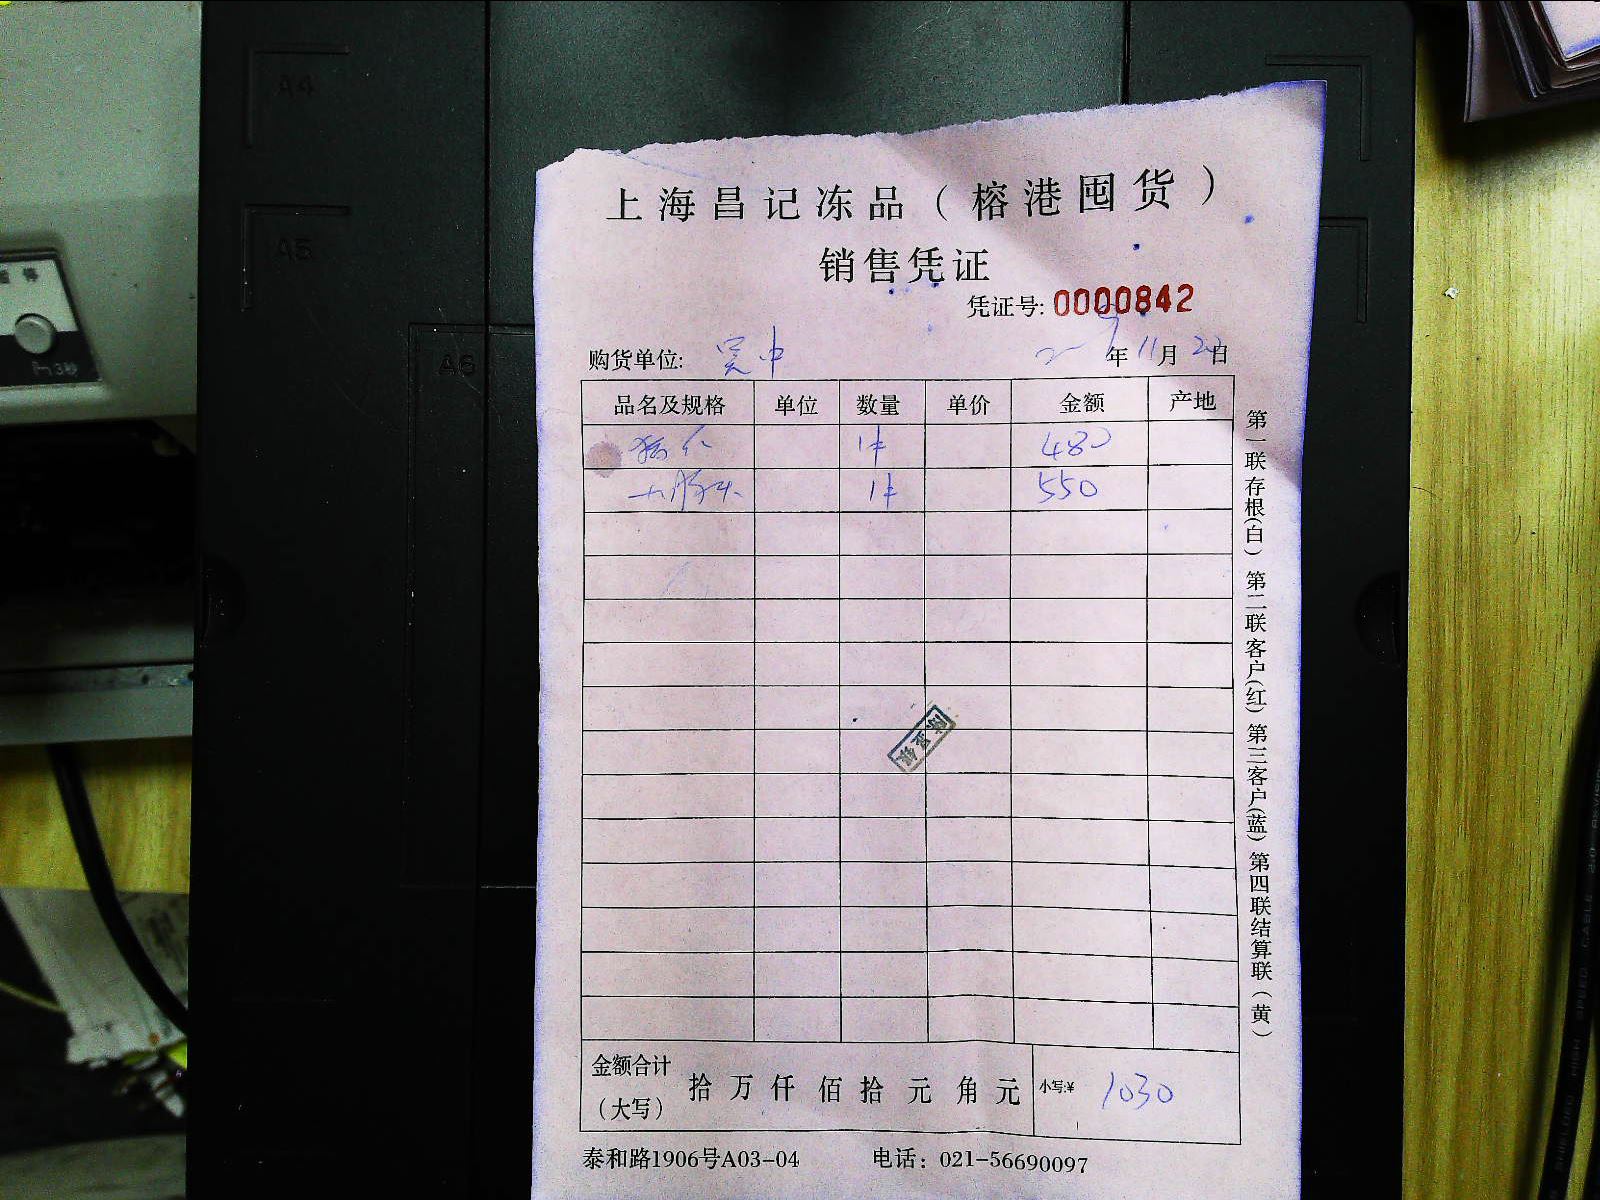 A4
A5
A6
上海昌记冻品（榕港囤货）
销售凭证
凭证号: 0000842
购货单位: 吴中 年 11月 日
品名及规格 单位 数量 单价 金额 产地
1件 480
大肠头 1件 550
金额合计（大写） 拾 万 仟 佰 拾 元 角 元 小写:¥ 1030
泰和路1906号A03-04 电话：021-56690097
第一联存根(白) 第二联客户(红) 第三客户(蓝) 第四联结算联（黄）